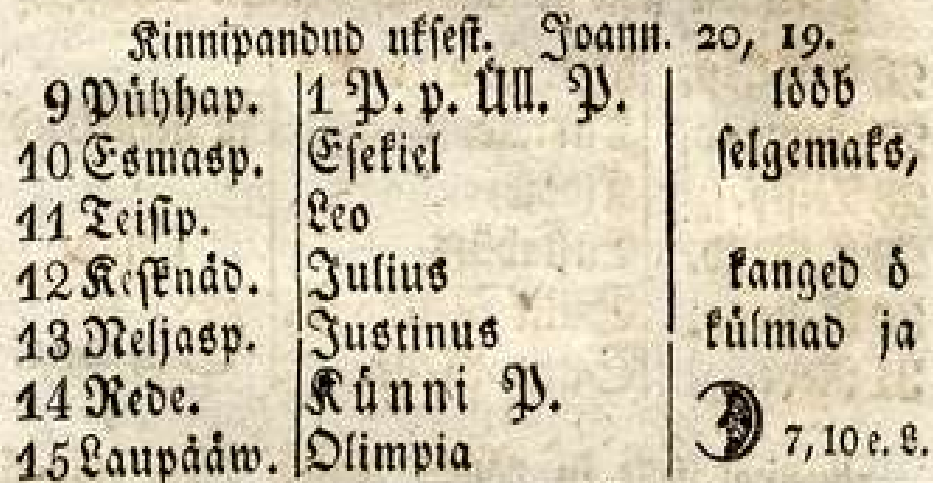 Kinnipandud uksest. Joann. 20, 19.
9 Pühhap. 1 P. p. Üll. P. lööb
10 Esmasp. Esekiel selgemaks,
11 Teisip. Leo
12 Kesknäd. Julius kanged ö
13 Neljasp. Justinus külmad ja
14 Rede. Künni P.
15 Laupääw. Olimpia 7, 10 e. L.